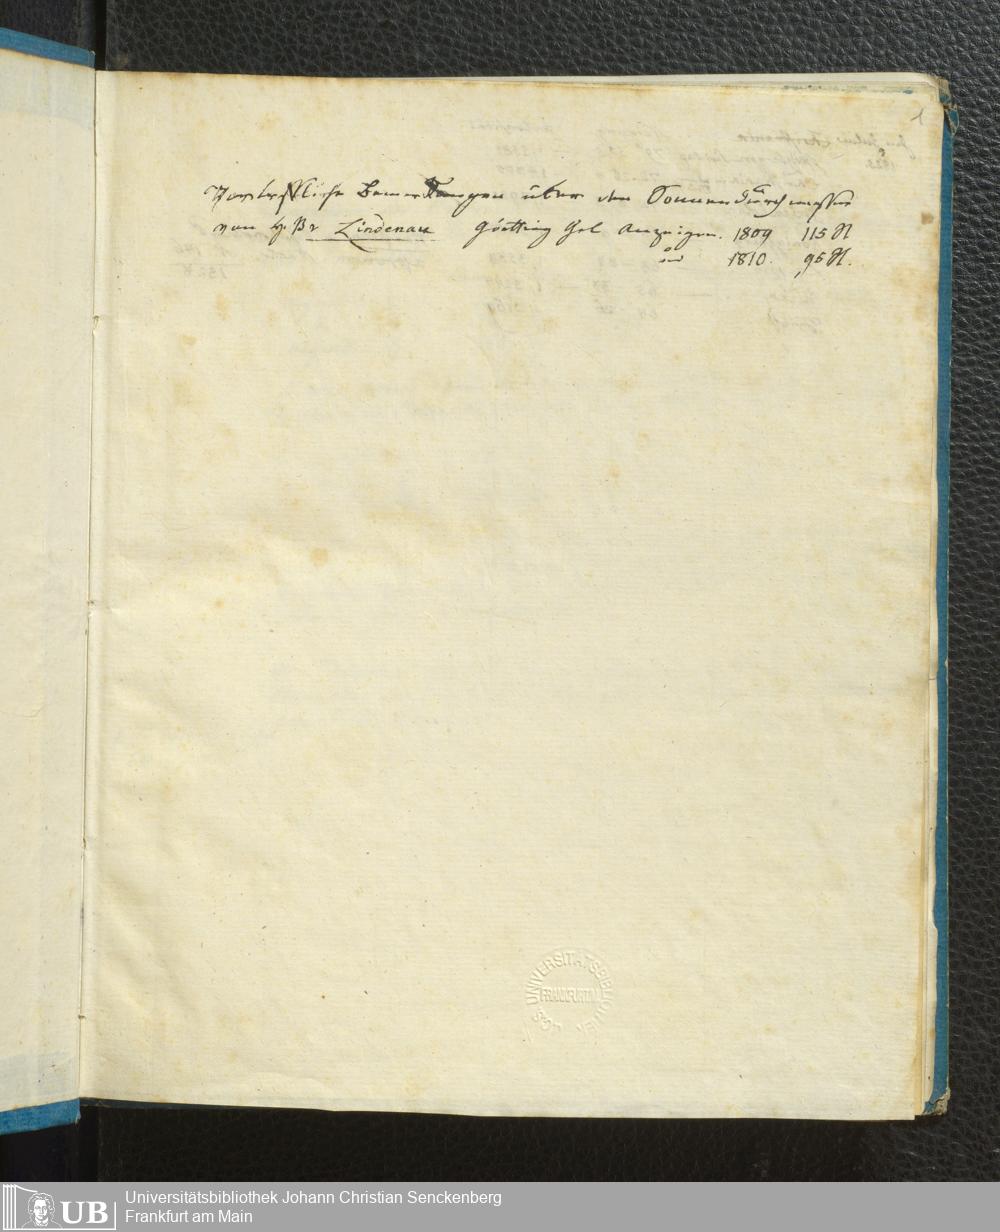 1
Vortreffliche Bemerkungen über den Sonnendurchmesser
von H. Br Lindenau Götting Gel Anzeigen. 1809 115 N
und 1810. 95 N.
UNIVERSITÄTSBIBLIOTHEK
FRANKFURT/M
J.C.S.
UB
Universitätsbibliothek Johann Christian Senckenberg
Frankfurt am Main